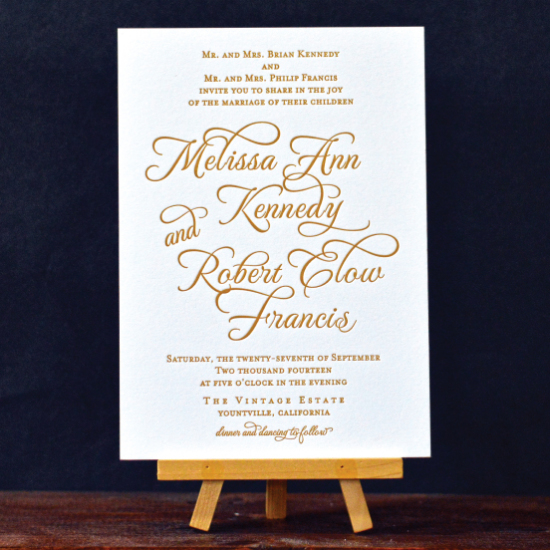 Mr. and Mrs. Brian Kennedy
and
Mr. and Mrs. Philip Francis
invite you to share in the joy
of the marriage of their children
Melissa Ann
Kennedy
and
Robert Clow
Francis
Saturday, the twenty-seventh of September
Two thousand fourteen
at five o'clock in the evening
The Vintage Estate
Yountville, California
dinner and dancing to follow